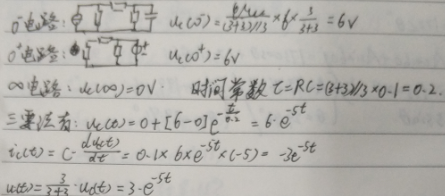 0⁻电路: uc(0⁻) = 6//(3+3)/(3+3)//3 × 6 × 3/(3+3) = 6V
0⁺电路: uc(0⁺) = 6V
∞电路: uc(∞) = 0V. 时间常数 τ = RC = (3+3)//3 × 0.1 = 0.2.
三要法有: uc(t) = 0 + [6-0]e^(-t/0.2) = 6·e^(-5t)
ic(t) = C· duc(t)/dt = 0.1 × 6 × e^(-5t) × (-5) = -3e^(-5t)
u(t) = 3/(3+3) · uc(t) = 3·e^(-5t)